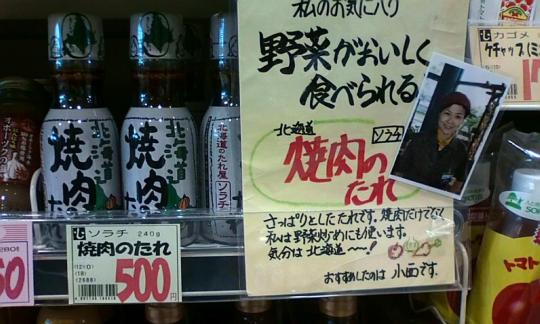 私のお気に入り
野菜がおいしく
食べられる
北海道
ソラチ
焼肉の
たれ
さっぱりとしたたれです。焼肉だけでなく
私は野菜炒めにも使います。
気分は北海道〜!
おすすめしたのは 小西です。
北海道
焼肉
北海道
焼肉
北海道のたれ屋
ソラチ
ソラチ 240g
焼肉のたれ
500円
カゴメ
ケチャップ(ミ
トマト